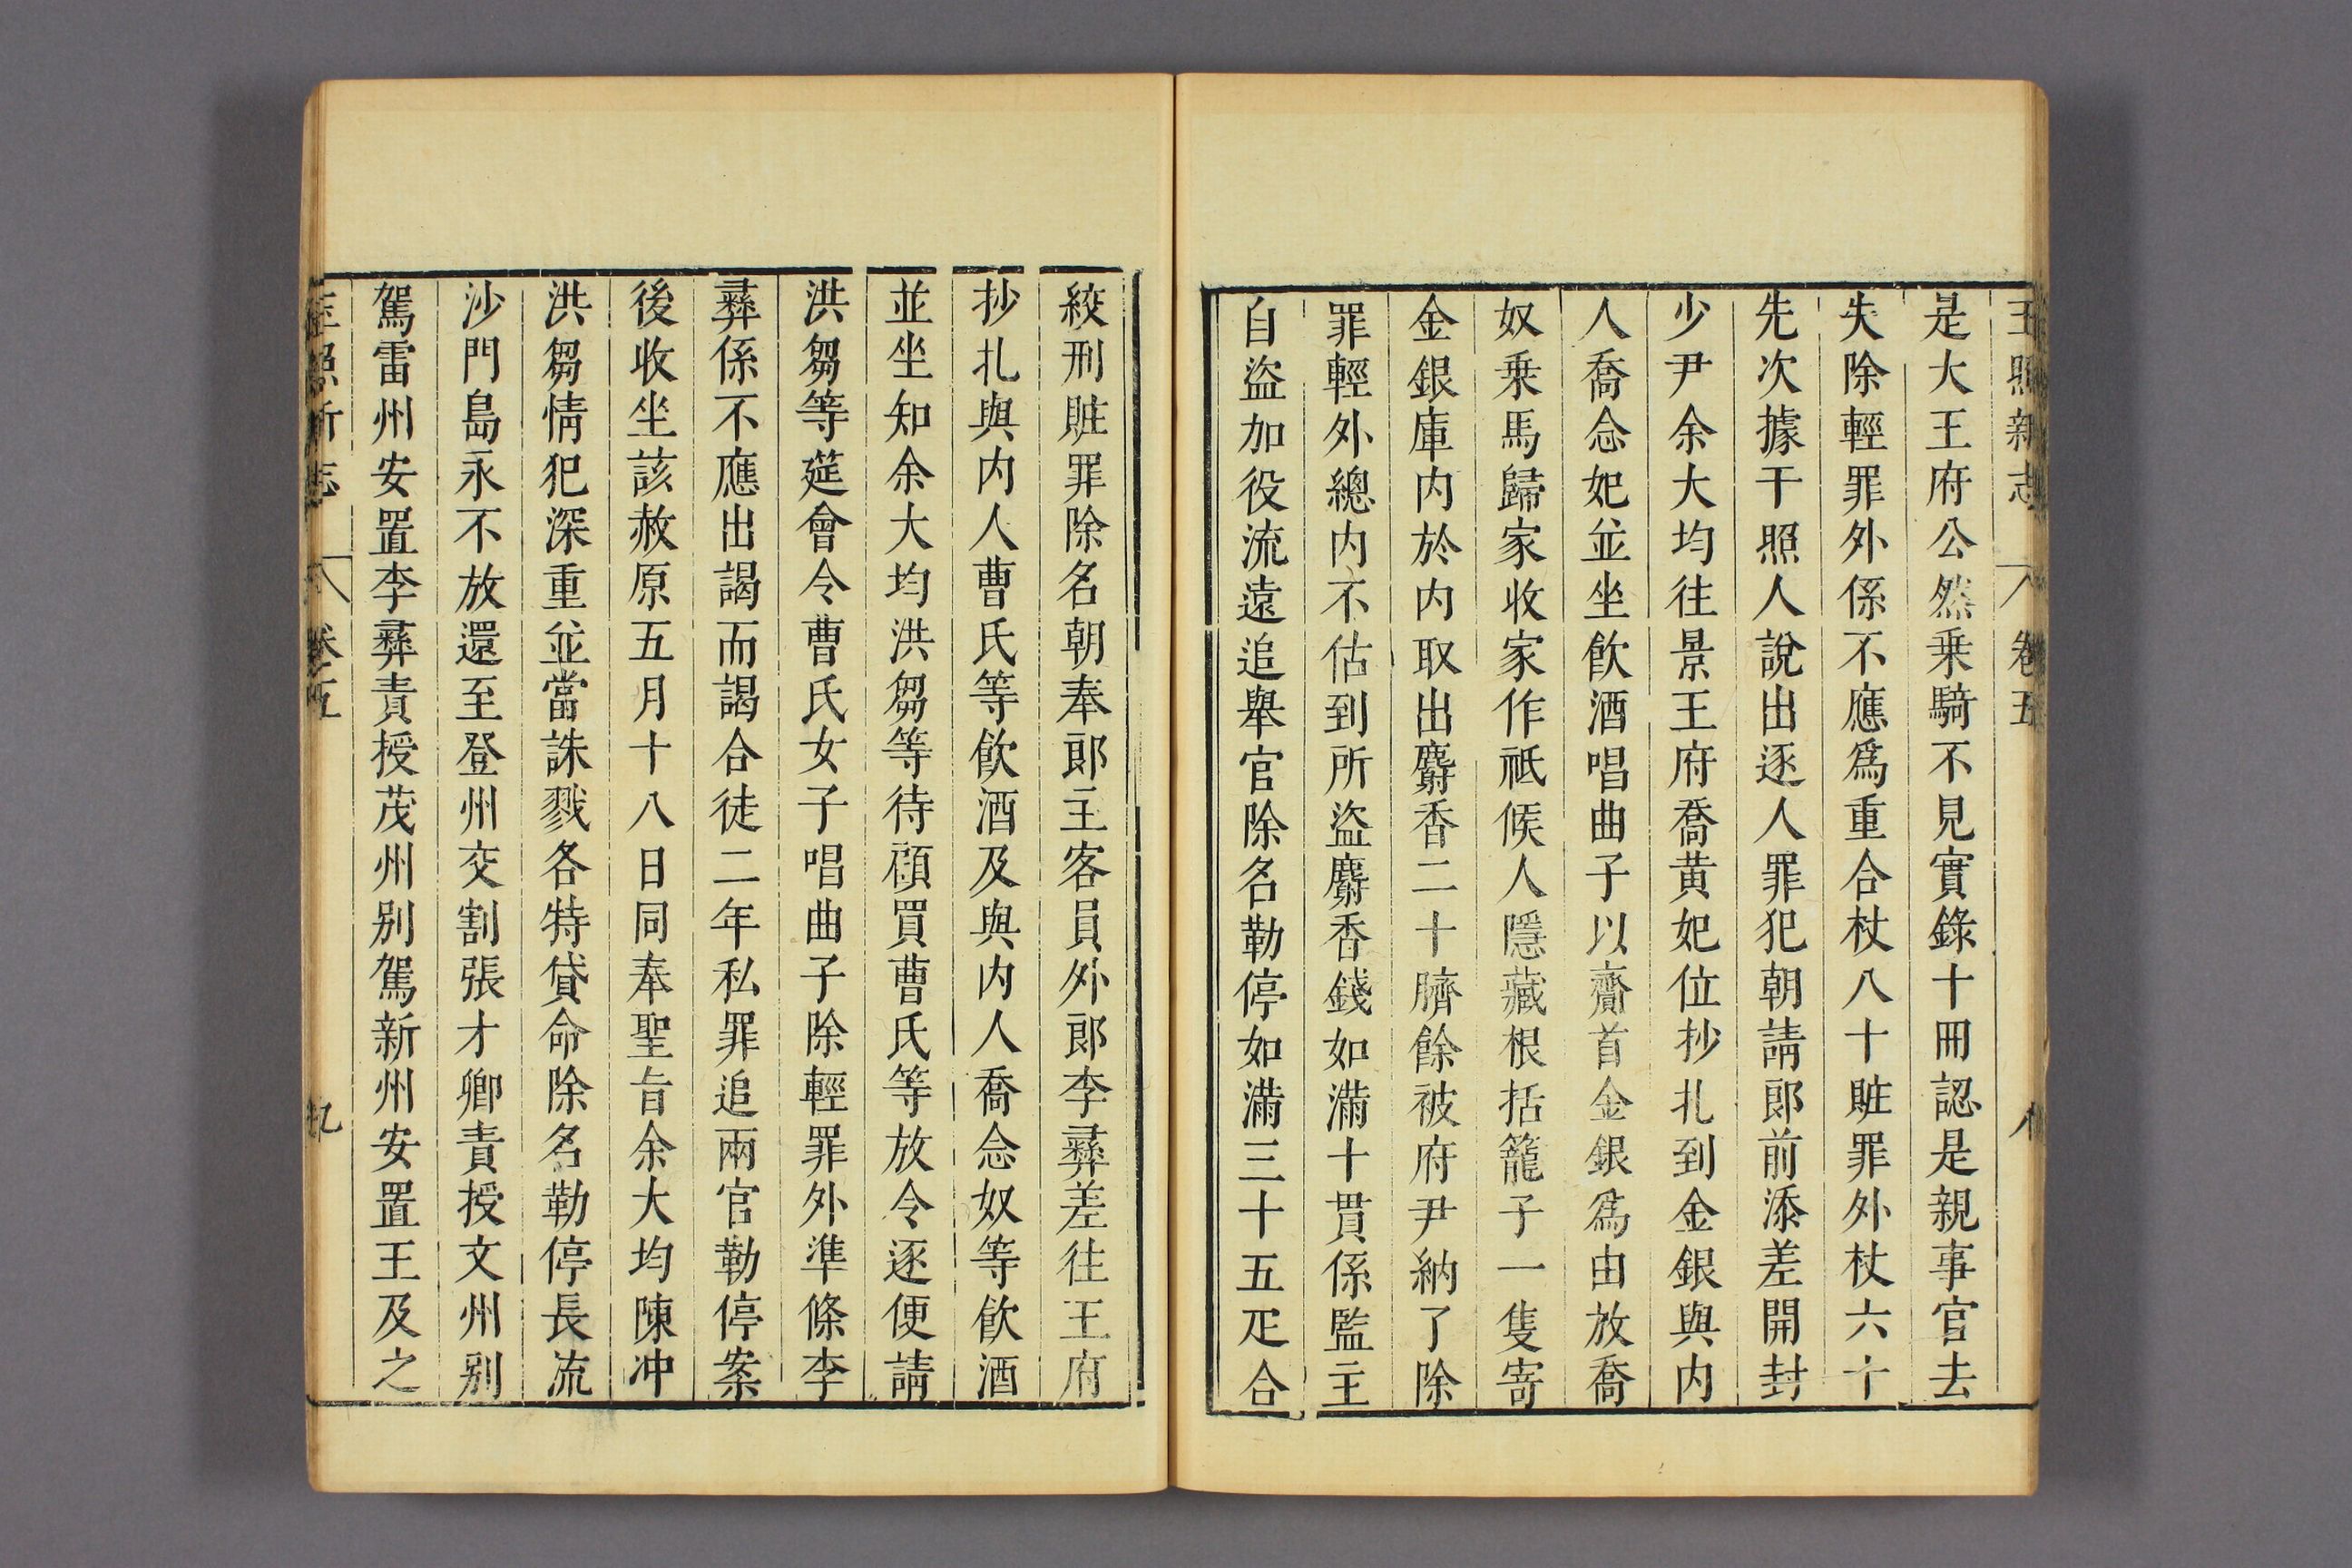 玉照新志 卷五 八
是大王府公然乗騎不見實錄十冊認是親事官去
失除輕罪外係不應爲重合杖八十賍罪外杖六十
先次據干照人說出逐人罪犯朝請郎前添差開封
少尹余大均往景王府喬黄妃位抄札到金銀與内
人喬念妃並坐飲酒唱曲子以齎首金銀爲由放喬
奴乗馬歸家收家作祗候人隱藏根括籠子一隻寄
金銀庫内於内取出麝香二十臍餘被府尹納了除
罪輕外總内不估到所盜麝香錢如滿十貫係監主
自盜加役流遠追舉官除名勒停如滿三十五疋合
絞刑賍罪除名朝奉郎主客員外郎李彛差往王府
抄札與内人曹氏等飲酒及與内人喬念奴等飲酒
並坐知余大均洪芻等待顧買曹氏等放令逐便請
洪芻等筵會令曹氏女子唱曲子除輕罪外準條李
彛係不應出謁而謁合徒二年私罪追兩官勒停案
後收坐該赦原五月十八日同奉聖旨余大均陳冲
洪芻情犯深重並當誅戮各特貸命除名勒停長流
沙門島永不放還至登州交割張才卿責授文州别
駕雷州安置李彛責授茂州别駕新州安置王及之
玉照新志 卷五 九